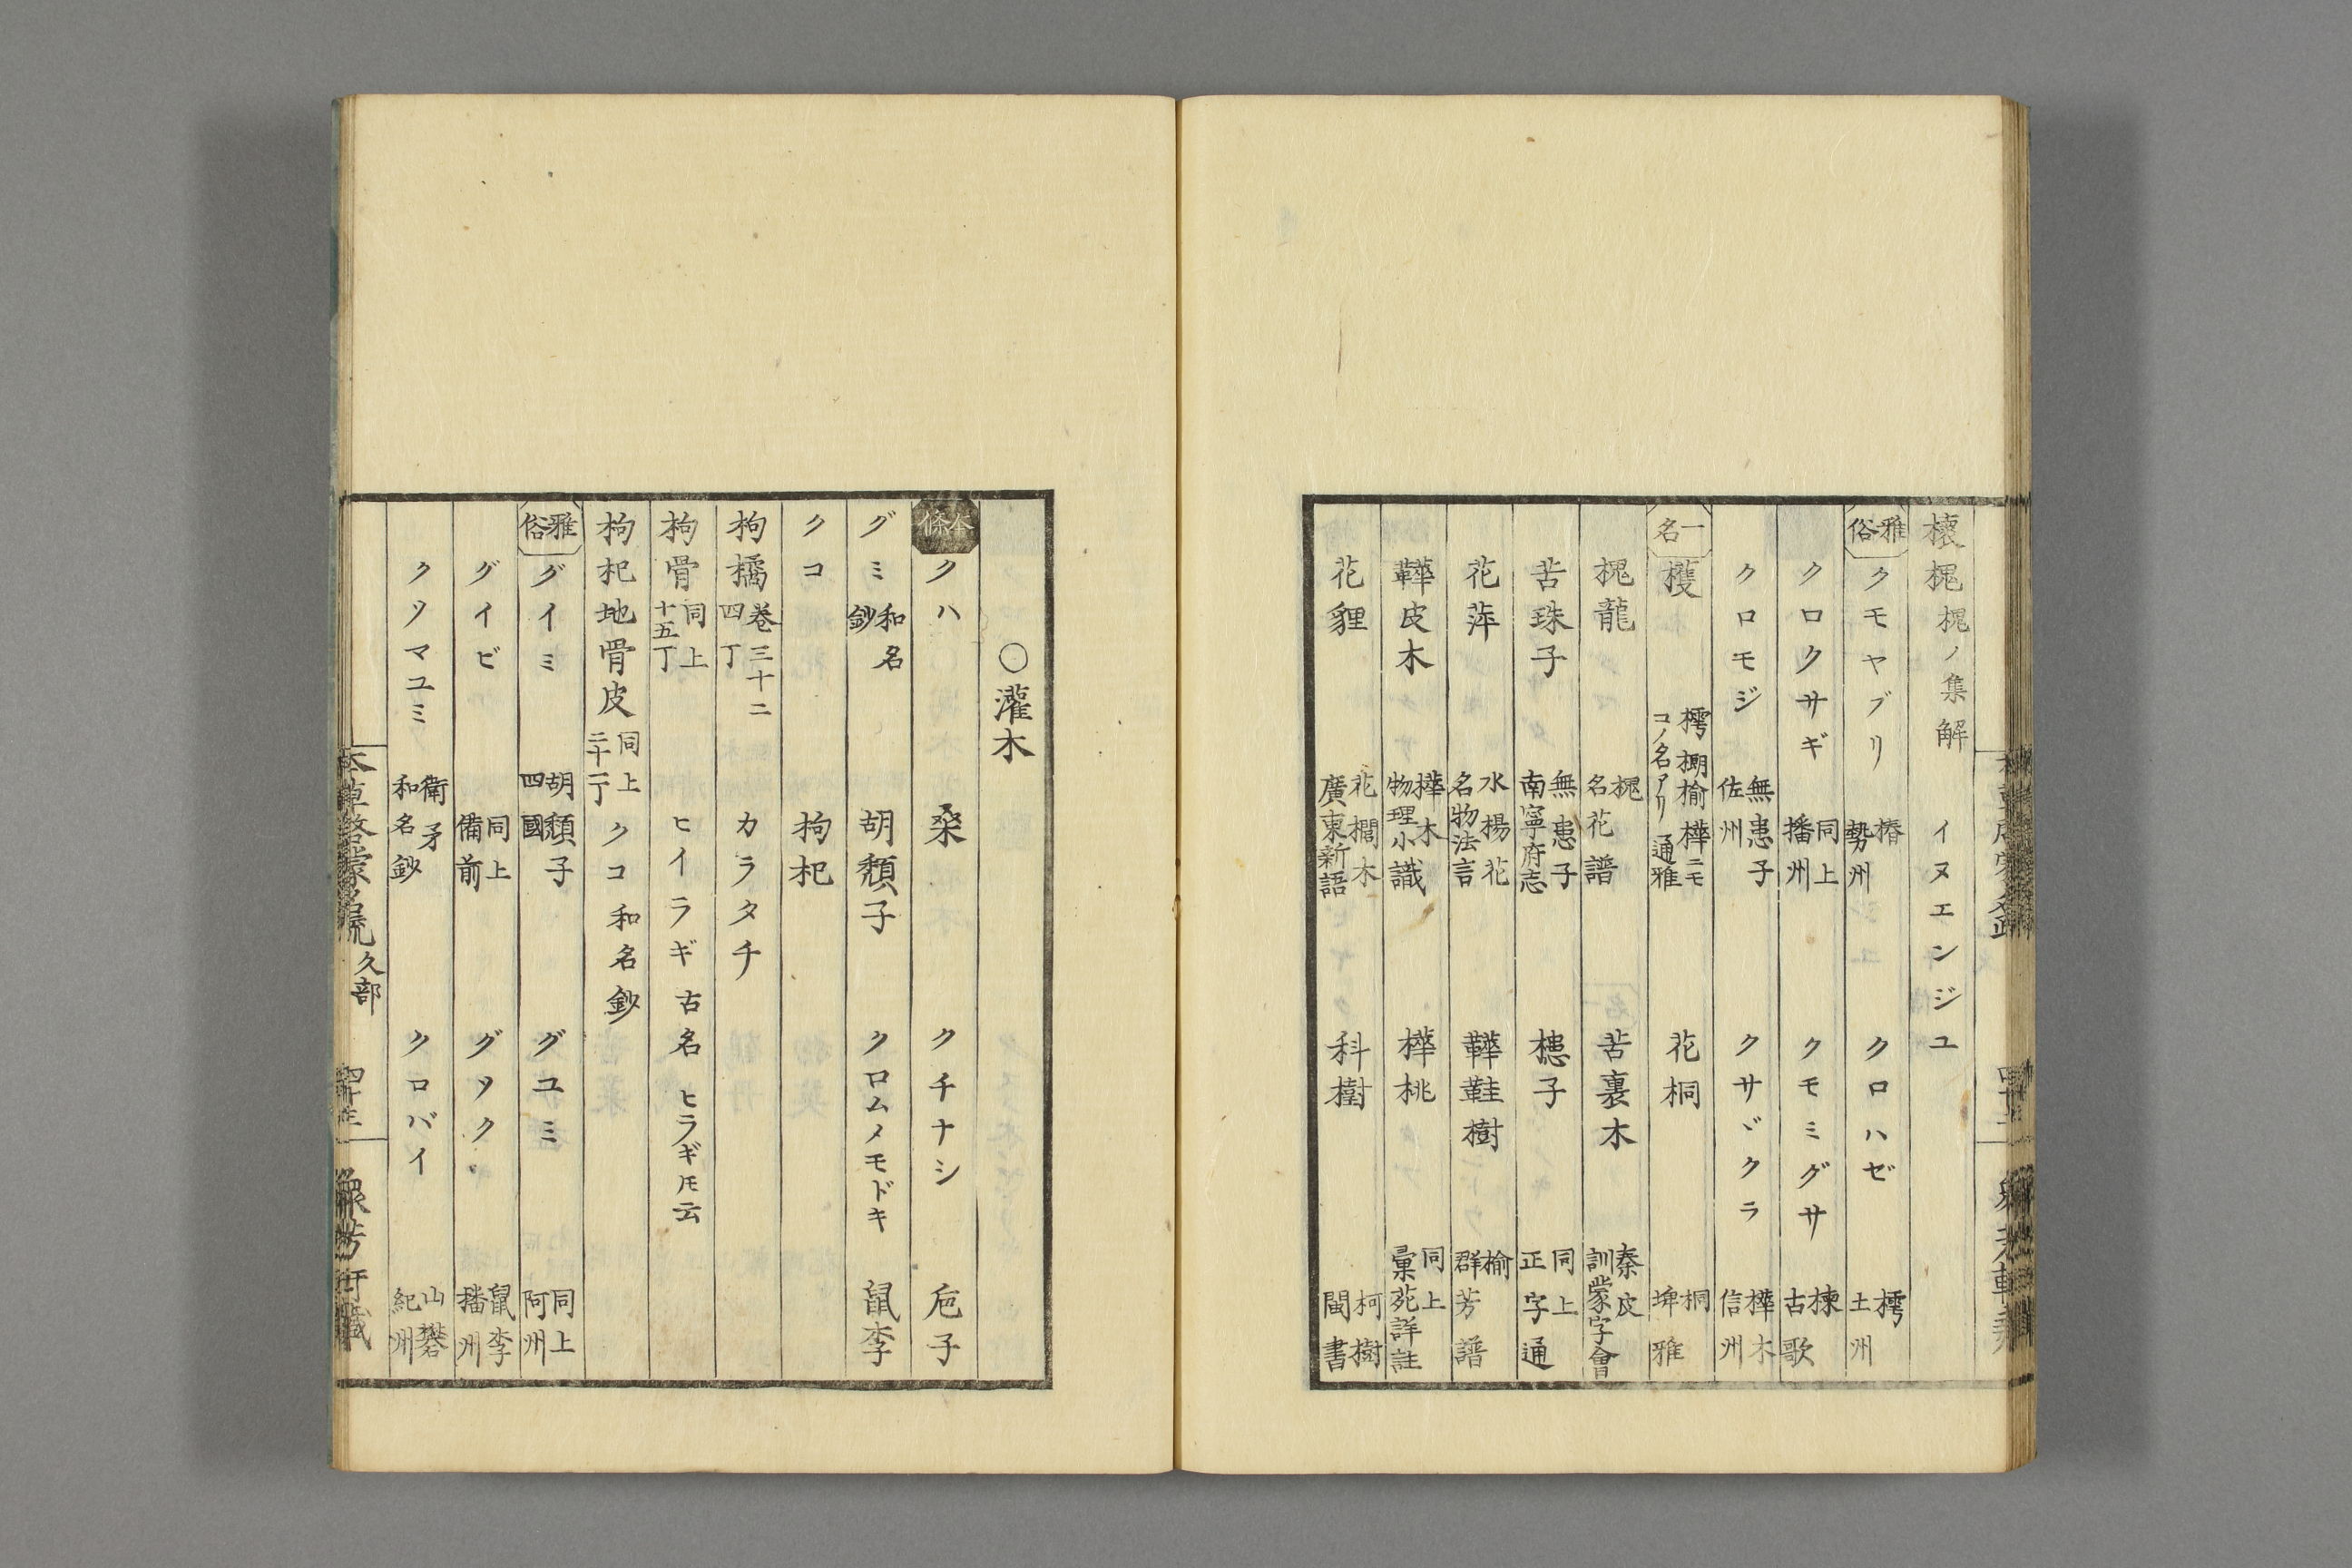 櫰槐 槐ノ集解 イヌエンジユ
雅俗 クモヤブリ 椿 勢州 クロハゼ 樗 土州
クロクサギ 同上 播州 クモミグサ 楝 古歌
クロモジ 無患子 佐州 クサヾクラ 樺木 信州
一名 樗 榆樺ニモコノ名アリ 通雅 花桐 桐 埤雅
槐龍 槐 名花譜 苦裏木 秦皮 訓蒙字會
苦珠子 無患子 南寧府志 槵子 同上 正字通
花萍 水楊花 名物法言 鞾鞋樹 榆 群芳譜
鞾皮木 樺木 物理小識 樺桃 同上 彙苑詳註
花貍 花櫚木 廣東新語 科樹 柯樹 閩書
○灌木
本條 クハ 桑 クチナシ 巵子
グミ 和名鈔 胡頽子 クロムメモドキ 鼠李
クコ 枸杞
枸橘 卷三十二 四丁 カラタチ
枸骨 同上 十五丁 ヒイラギ 古名 ヒラギトモ云
枸杞地骨皮 同上 二十一丁 クコ 和名鈔
雅俗 グイミ 胡頽子 四國 グユミ 同上 阿州
グイビ 同上 備前 グソク 鼠李 播州
クソマユミ 衛矛 和名鈔 クロバイ 山礬 紀州
本草啓蒙名疏 久部 四十三 衆芳軒藏